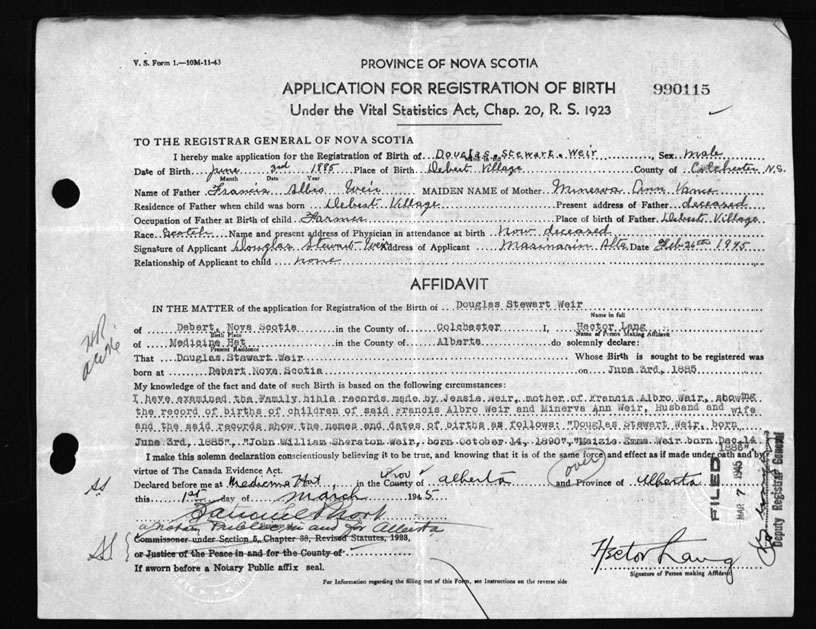 V. S. Form 1.—10M-11-43
PROVINCE OF NOVA SCOTIA
APPLICATION FOR REGISTRATION OF BIRTH
990115
Under the Vital Statistics Act, Chap. 20, R. S. 1923
TO THE REGISTRAR GENERAL OF NOVA SCOTIA
I hereby make application for the Registration of Birth of Douglas Stewart Weir, Sex male
Date of Birth June 3rd 1885 Place of Birth Debert Village County of Colchester N.S.
Month Date Year
Name of Father Francis Albro Weir MAIDEN NAME of Mother Minerva Ann Vance
Residence of Father when child was born Debert Village Present address of Father deceased
Occupation of Father at Birth of child Farmer Place of birth of Father Debert Village
Race Scotch Name and present address of Physician in attendance at birth now deceased
Signature of Applicant Douglas Stewart Weir Address of Applicant Masinasin Alta Date Feb 24th 1945
Relationship of Applicant to child none
AFFIDAVIT
IN THE MATTER of the application for Registration of the Birth of Douglas Stewart Weir
Name in full
of Debert, Nova Scotia in the County of Colchester I, Hector Lang
Birth Place Name of Person Making Affidavit
of Medicine Hat in the County of Alberta do solemnly declare:
Present Residence
That Douglas Stewart Weir Whose Birth is sought to be registered was
born at Debert Nova Scotia on June 3rd, 1885
My knowledge of the fact and date of such Birth is based on the following circumstances:
I have examined the Family bible records made by Jessie Weir, mother of Francis Albro Weir, showing
the record of births of children of said Francis Albro Weir and Minerva Ann Weir, Husband and wife
and the said records show the names and dates of births as follows: "Douglas Stewart Weir, born
June 3rd, 1885", "John William Sheraton Weir, born October 14, 1890", "Maizie Emma Weir born Dec 14
1886"
I make this solemn declaration conscientiously believing it to be true, and knowing that it is of the same force and effect as if made under oath and by
virtue of The Canada Evidence Act.
(over)
Declared before me at Medicine Hat, in the County of Alberta and Province of Alberta
this 1st day of March 1945
a Notary Public in and for Alberta
Commissoner under Section 5, Chapter 38, Revised Statutes, 1923,
or Justice of the Peace in and for the County of
If sworn before a Notary Public affix seal.
Hector Lang
Signature of Person making Affidavit
For Information regarding the filling out of this Form, see Instructions on the reverse side
FILED
MAR 7 1945
Deputy Registrar General